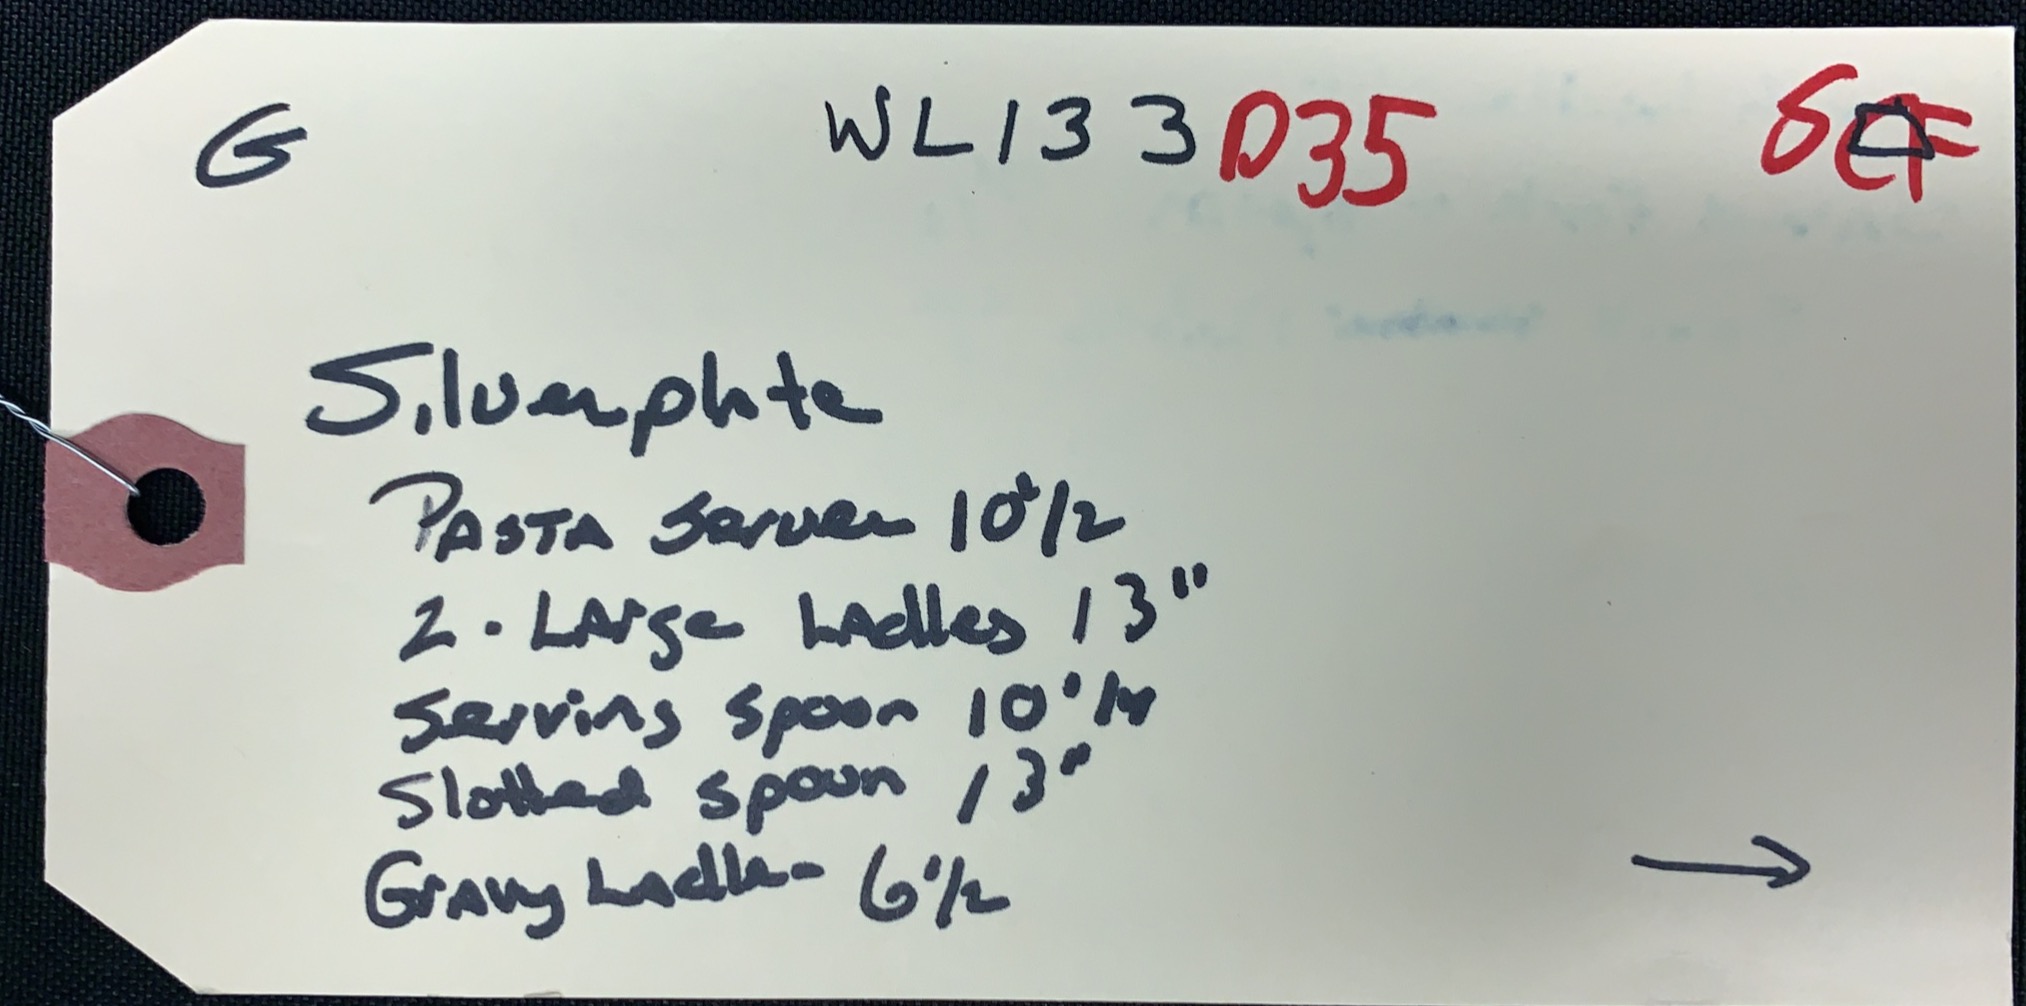 G WL133 D35
Silverplate
Pasta Server 10 1/2
2. Large Ladles 13"
Serving spoon 10 1/4
Slotted spoon 13"
Gravy Ladle - 6 1/2